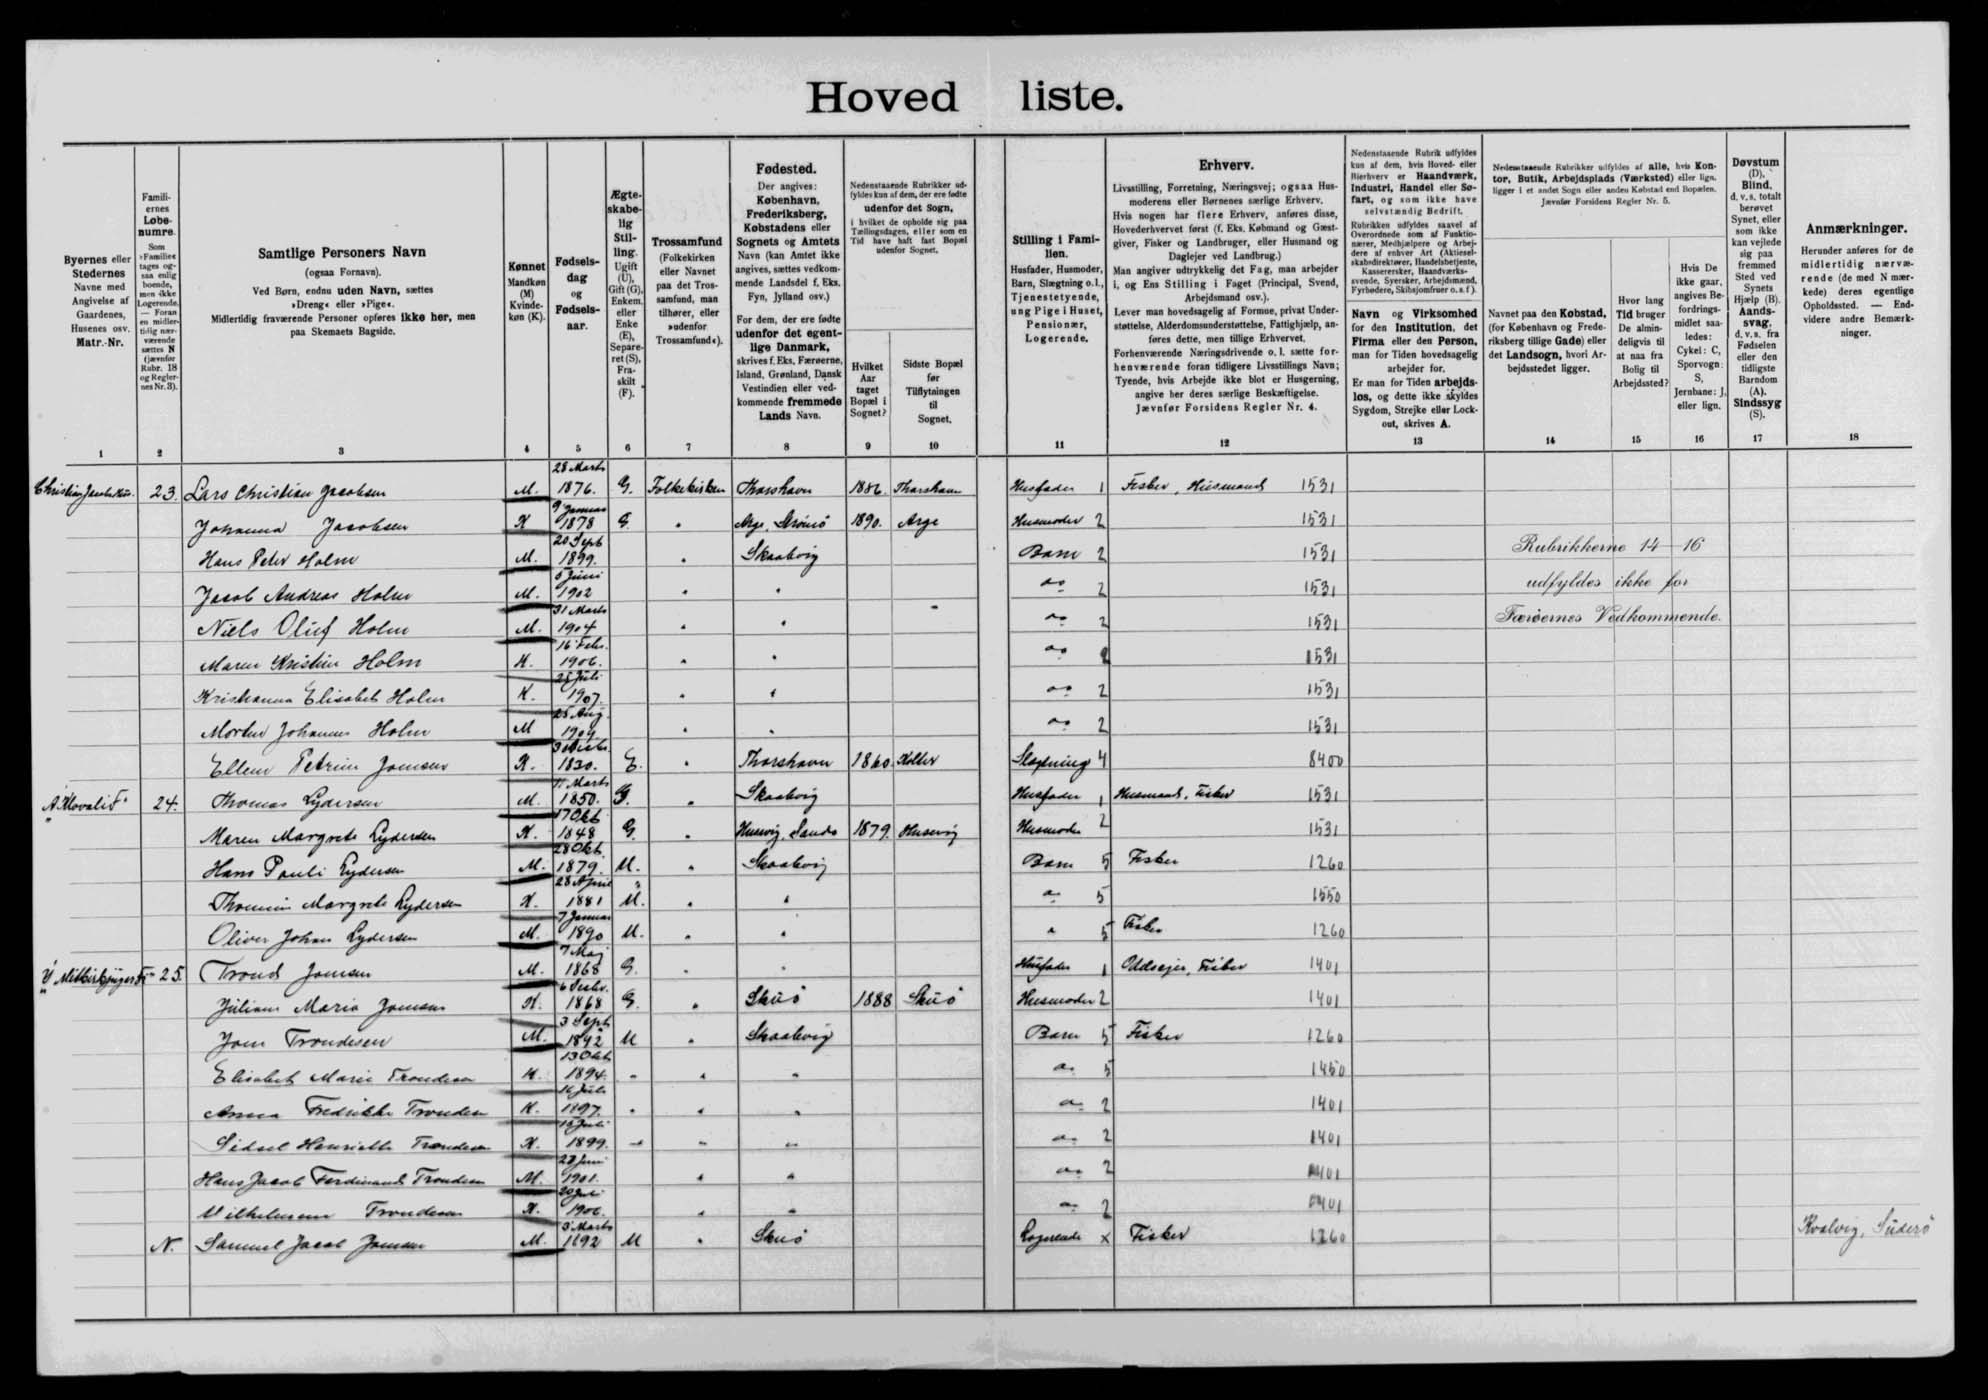 Hoved liste.
Byernes eller
Stedernes
Navne med
Angivelse af
Gaardenes,
Husenes osv.
Matr.-Nr.
Famili-
ernes
Løbe-
numre.
Som
»Familie«
tages og-
saa enlig
boende,
men ikke
Logerende.
— Foran
en midler-
tidig nær-
værende
sættes N
(jævnfør
Rubr. 18
og Regler-
nes Nr. 3).
Samtlige Personers Navn
(ogsaa Fornavn).
Ved Børn, endnu uden Navn, sættes
»Dreng« eller »Pige«.
Midlertidig fraværende Personer opføres ikke her, men
paa Skemaets Bagside.
Kønnet
Mandkøn
(M)
Kvinde-
køn (K).
Fødsels-
dag
og
Fødsels-
aar.
Ægte-
skabe-
lig
Stil-
ling.
Ugift
(U),
Gift (G),
Enkem.
eller
Enke
(E),
Separe-
ret (S),
Fra-
skilt
(F).
Trossamfund
(Folkekirken
eller Navnet
paa det Tros-
samfund, man
tilhører, eller
»udenfor
Trossamfund«).
Fødested.
Der angives:
København,
Frederiksberg,
Købstadens eller
Sognets og Amtets
Navn (kan Amtet ikke
angives, sættes vedkom-
mende Landsdel f. Eks.
Fyn, Jylland osv.)
For dem, der ere fødte
udenfor det egent-
lige Danmark,
skrives f. Eks. Færøerne,
Island, Grønland, Dansk
Vestindien eller ved-
kommende fremmede
Lands Navn.
Nedenstaaende Rubrikker ud-
fyldes kun af dem, der ere fødte
udenfor det Sogn,
i hvilket de opholde sig paa
Tællingsdagen, eller som en
Tid have haft fast Bopæl
udenfor Sognet.
Hvilket
Aar
taget
Bopæl i
Sognet?
Sidste Bopæl
før
Tilflytningen
til
Sognet.
Stilling i Fami-
lien.
Husfader, Husmoder,
Barn, Slægtning o.l.,
Tjenestetyende,
ung Pige i Huset,
Pensionær,
Logerende.
Erhverv.
Livsstilling, Forretning, Næringsvej; ogsaa Hus-
moderens eller Børnenes særlige Erhverv.
Hvis nogen har flere Erhverv, anføres disse,
Hovederhvervet først (f. Eks. Købmand og Gæst-
giver, Fisker og Landbruger, eller Husmand og
Daglejer ved Landbrug.)
Man angiver udtrykkelig det Fag, man arbejder
i, og Ens Stilling i Faget (Principal, Svend,
Arbejdsmand osv.).
Lever man hovedsagelig af Formue, privat Under-
støttelse, Alderdomsunderstøttelse, Fattighjælp, an-
føres dette, men tillige Erhvervet.
Forhenværende Næringsdrivende o. l. sætte for-
henværende foran tidligere Livsstillings Navn;
Tyende, hvis Arbejde ikke blot er Husgerning,
angive her deres særlige Beskæftigelse.
Jævnfør Forsidens Regler Nr. 4.
Nedenstaaende Rubrik udfyldes
kun af dem, hvis Hoved- eller
Bierhverv er Haandværk,
Industri, Handel eller Sø-
fart, og som ikke have
selvstændig Bedrift.
Rubrikken udfyldes saavel af
Overordnede som af Funktio-
nærer, Medhjælpere og Arbej-
dere af enhver Art (Aktiesel-
skabsdirektører, Handelsbetjente,
Kassererskер, Haandværks-
svende, Syersker, Arbejdsmænd,
Fyrbødere, Skibsjomfruer o. s. f.).
Navn og Virksomhed
for den Institution, det
Firma eller den Person,
man for Tiden hovedsagelig
arbejder for.
Er man for Tiden arbejds-
løs, og dette ikke skyldes
Sygdom, Strejke eller Lock-
out, skrives A.
Nedenstaaende Rubrikker udfyldes af alle, hvis Kon-
tor, Butik, Arbejdsplads (Værksted) eller lign.
ligger i et andet Sogn eller anden Købstad end Bopælen.
Jævnfør Forsidens Regler Nr. 5.
Navnet paa den Købstad,
(for København og Frede-
riksberg tillige Gade) eller
det Landsogn, hvori Ar-
bejdsstedet ligger.
Hvor lang
Tid bruger
De almin-
deligvis til
at naa fra
Bolig til
Arbejdssted?
Hvis De
ikke gaar,
angives Be-
fordrings-
midlet saa-
ledes:
Cykel: C,
Sporvogn:
S,
Jernbane: J,
eller lign.
Døvstum
(D),
Blind,
d. v. s. totalt
berøvet
Synet, eller
som ikke
kan vejlede
sig paa
fremmed
Sted ved
Synets
Hjælp (B).
Aands-
svag,
d. v. s. fra
Fødselen
eller den
tidligste
Barndom
(A).
Sindssyg
(S).
Anmærkninger.
Herunder anføres for de
midlertidig nærvæ-
rende (de med N mær-
kede) deres egentlige
Opholdssted. — End-
videre andre Bemærk-
ninger.
1 2 3 4 5 6 7 8 9 10 11 12 13 14 15 16 17 18
23. Lars Christian Jacobsen M. 28 Marts 1876. G. Folkekirken Thorshavn 1886. Thorshavn Husfader 1 Fisker, Husmand 1531
Johanna Jacobsen K 9 Januar 1878 G. " Arge, Strømø 1890. Arge Husmoder 2 1531
Hans Peter Holm M. 20 Sept 1899. " Skaalevig Barn 2 1531 Rubrikkerne 14-16
Jacob Andreas Holm M. 5 Juni 1902 " " do 2 1531 udfyldes ikke for
Niels Oluf Holm M. 31 Marts 1904 " " do 2 1531 Færøernes Vedkommende.
Maren Kristine Holm K. 16 Febr. 1906. " " do 2 1531
Kristianna Elisabet Holm K. Juli 1907. " " do 2 1531
Morten Johannes Holm M 25 Aug. 1909 " " do 2 1531
Ellen Petrine Joensen K. 1830. E. " Thorshavn 1860. Kolter Slægtning 4 8400
24. Thomas Lydersen M. 11 Marts 1850. G. " Skaalevig Husfader 1 Husmand, Fisker 1531
Maren Margrete Lydersen K. 17 Okt 1848 G. " Husevig, Sands 1879. Husevig Husmoder 2 1531
Hans Pauli Lydersen M. 28 Okt. 1879. U. " Skaalevig Barn 5 Fisker 1260
Margrete Lydersen K. 28 April 1881 U. " " do 5 1550
Oliver Johan Lydersen M. 7 Januar 1890 U. " " " 5 Fisker 1260
25. Trond Joensen M. 7 Maj 1868 G. " " Husfader 1 Odelsejer, Fisker 1401
Juliane Maria Joensen K. 1868 G. " Skuø 1888 Skuø Husmoder 2 1401
Joen Trondesen M. 3 Sept 1892 U " Skaalevig Barn 5 Fisker 1260
Elisabet Marie Trondesen K. 13 Okt 1894. " " " do 5 1450
Anna Fredrikke Trondesen K. 16 Juli 1897. " " " do 2 1401
Sidsel Henriette Trondesen K. 15 Juli 1899. " " " do 2 1401
Hans Jacob Ferdinand Trondesen M. Juni 1901. " " do 2 1401
Vilhelmine Trondesen K. 20 Juli 1906. " " do 2 1401
N. Samuel Jacob Joensen M. 3 Marts 1892 U " Skuø Logerende x Fisker 1260 Kvalvig, Suderø